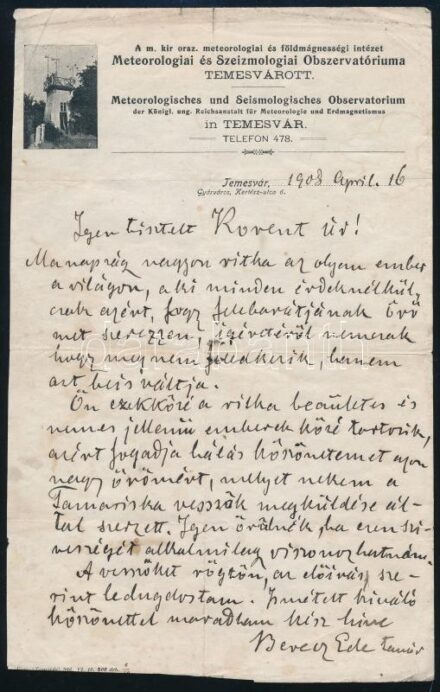 A m. kir orsz. meteorologiai és földmágnességi intézet
Meteorologiai és Szeizmologiai Obszervatóriuma
TEMESVÁROTT.
Meteorologisches und Seismologisches Observatorium
der Königl. ung. Reichsanstalt für Meteorologie und Erdmagnetismus
in TEMESVÁR.
TELEFON 478.
Temesvár, 1908 April. 16
Gyárváros, Kertész-utca 6.
Igen tisztelt Kovent úr!
Manapság nagyon ritka az olyan ember
a világon, a ki minden érdek nélkül,
csak azért, hogy felebarátjának örö
met szerezzen, igéretéről nemcsak
hogy meg nem feledkezik, hanem
azt be is váltja.
Ön ezek közé a ritka becsületes és
nemes jellemü emberek közé tartozik,
azért fogadja hálás köszönetemet azon
nagy örömért, melyet nekem a
Tamariska vesszők megküldése ál-
tal szerzett. Igen örülnék, ha ezen szi-
vességét alkalmilag viszonozhatnám.
A vesszőket rögtön, az előirás sze-
rint ledugdostam. Ismételt kiváló
köszönettel maradtam kész hive
Berecz Ede tanár